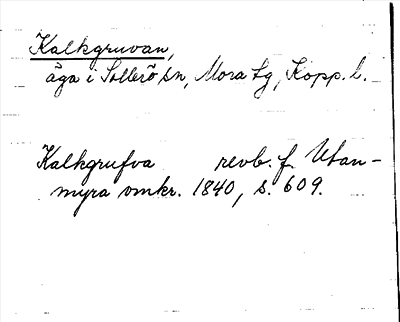 Kalkgruvan,
äga i Sollerö sn, Mora tg, Kopp. l.
Kalkgrufva revb. f. Utan-
myra omkr. 1840, s. 609.